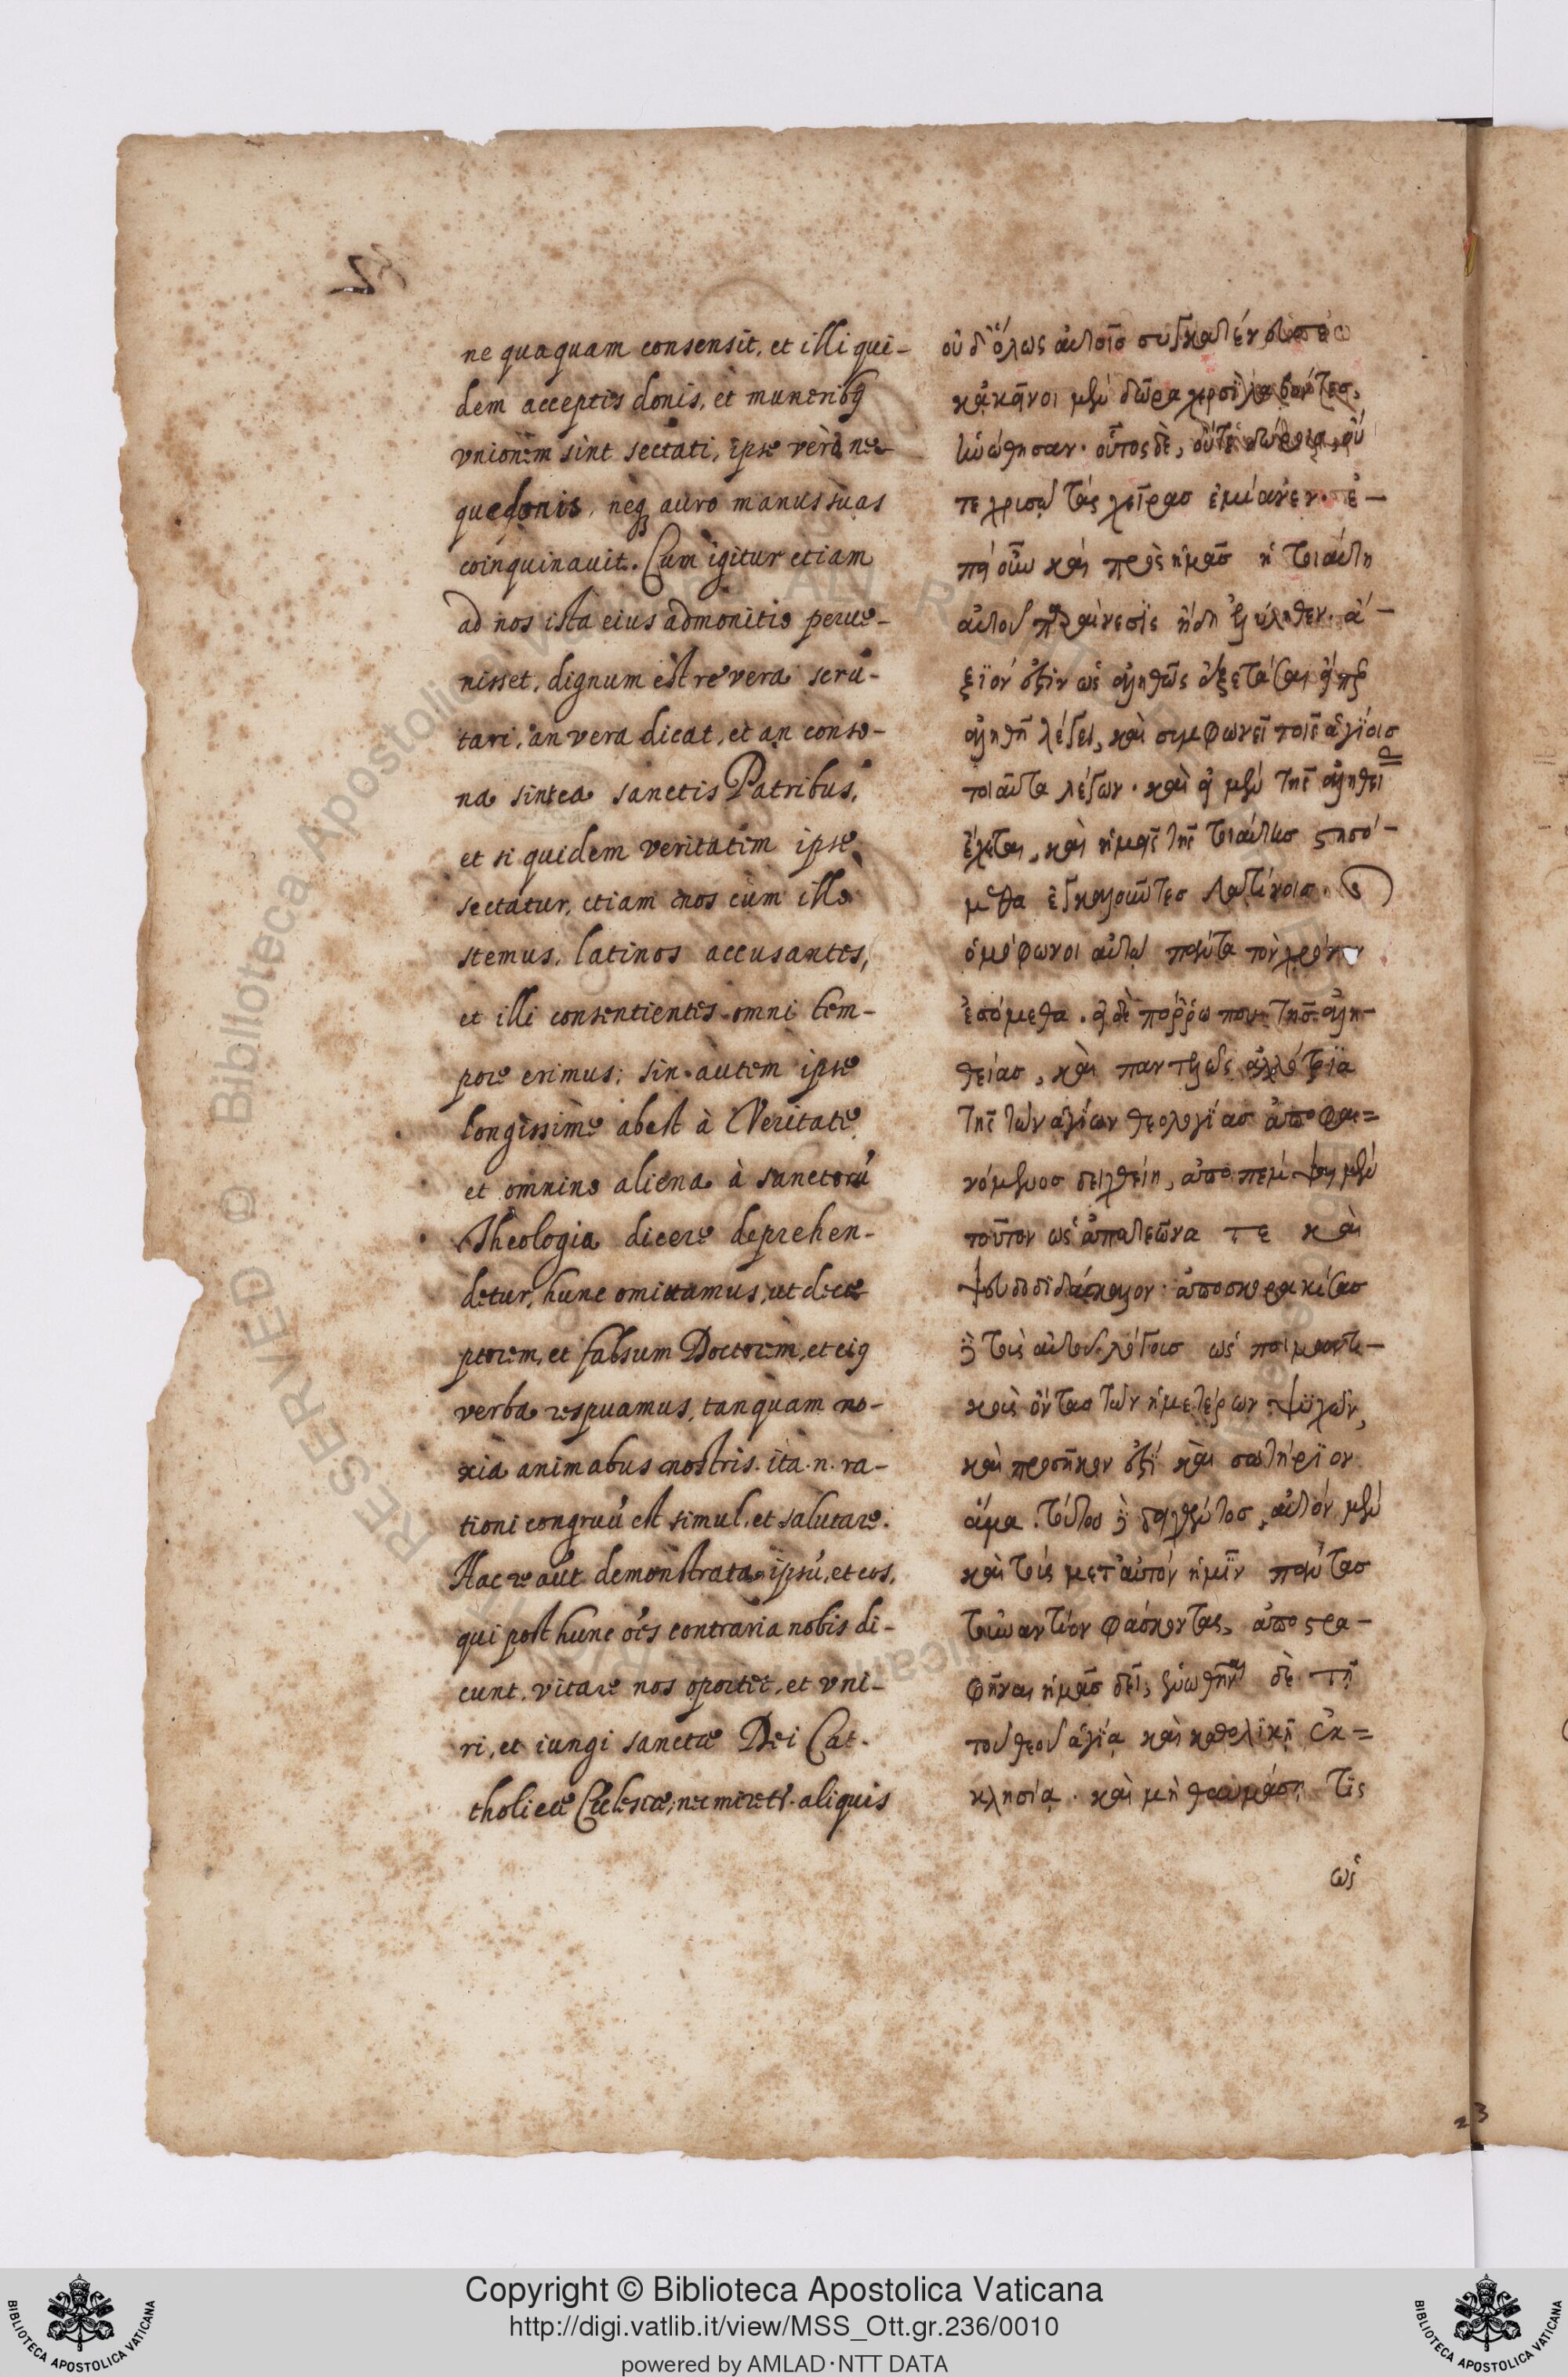 ne quaquam consensit, et illi qui-
dem acceptis donis, et muneribꝯ
vnionem sint sectati, ipse verò ne-
que donis, neqꝫ auro manus suas
coinquinauit. Cum igitur etiam
ad nos ista eius admonitio perue-
nisset, dignum est re vera scru-
tari, an vera dicat, et an conso-
na sint ea sanctis Patribus,
et si quidem veritatem ipse
sectatur, etiam nos cum illo
stemus, latinos accusantes,
et illi consentientes omni tem-
pore erimus; sin autem ipse
longissime abest à Veritate
et omnino aliena à sanctorū
Theologia dicere deprehen-
detur, hunc omittamus, ut dece
ptorem, et falsum Doctorem, et eiꝯ
verba respuamus, tanquam no-
xia animabus nostris. ita .n. ra-
tioni congruū est simul, et salutare.
Hac re aūt demonstrata ipsū, et eos,
qui post hunc oēs contraria nobis di-
cunt, vitare nos oportet, et vni-
ri, et iungi sanctæ Dei Cat-
tholicæ Ecclesiæ, nec miretr̄ aliquis
οὐδ' ὅλως αὐτοῖσ συγκατένευσεν
κἀκεῖνοι μὲν δῶρα προσλαβόντεσ,
ἡνώθησαν. οὗτος δὲ, οὔτε δώροισ, οὔ
τε χρυσῷ τὰς χεῖρασ ἐμίανεν. ἐ-
πεὶ οὖν καὶ πρὸς ἡμᾶσ ἡ τοιαύτη
αὐτοῦ παραίνεσις ἤδη ἐξῆλθεν. ἄ-
ξϊόν ἐστὶν ὡς ἀληθῶς ἐξετάσαι εἴπερ
ἀληθῆ λέγει, καὶ συμφωνεῖ τοῖς ἁγίοισ
τοιαῦτα λέγων. καὶ εἰ μὲν τῆς ἀληθεί
ἔχεται, καὶ ἡμεῖς τῆς τοιαύτησ στησό-
μεθα ἐγκαλοῦντεσ Λατίνοισ.
ὁμόφωνοι αὐτῷ πάντα τὸν χρόνον
ἐσόμεθα. εἰ δὲ πόῤῥω που τῆσ ἀλη-
θείασ, καὶ παντελῶς ἀλλότρϊα
τῆς τῶν ἁγίων θεολογίασ ἀποφαι=
νόμενοσ δειχθείη, ἀποπεμ μὲν
τοῦτον ὡς ἀπατεῶνα τε καὶ
ψευδοδιδάσκαλον.
αὐτοῦ λόγουσ ὡς
ὄντασ τῶν ἡμετέρων ψυχῶν,
καὶ προσῆκον ἐστὶ καὶ σωτήρϊον
ἅμα. τούτου δειχθέντοσ, αὐτὸν μὲν
καὶ τοὺς μετ' αὐτὸν ἡμῖν πάντασ
τοὐναντίον φάσκοντας, ἀποστρα-
φῆναι ἡμᾶσ δεῖ, ἑνωθῆναι δὲ τῇ
τοῦ θεοῦ ἁγίᾳ καὶ καθολικῇ ἐκ=
κλησίᾳ. καὶ μὴ θαυμάσῃ τὶς
ὡς
23
Copyright © Biblioteca Apostolica Vaticana
http://digi.vatlib.it/view/MSS_Ott.gr.236/0010
powered by AMLAD·NTT DATA
BIBLIOTECA APOSTOLICA VATICANA
BIBLIOTECA APOSTOLICA VATICANA